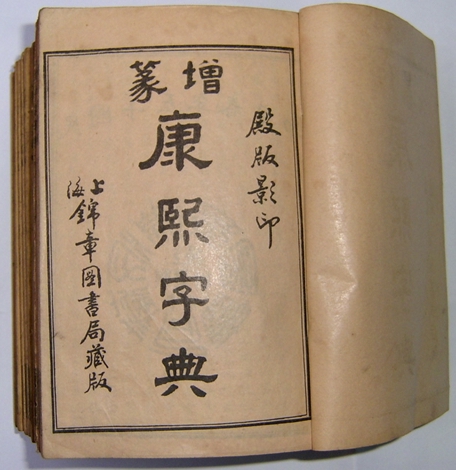 增篆
殿版影印
康熙字典
上海錦章圖書局藏版